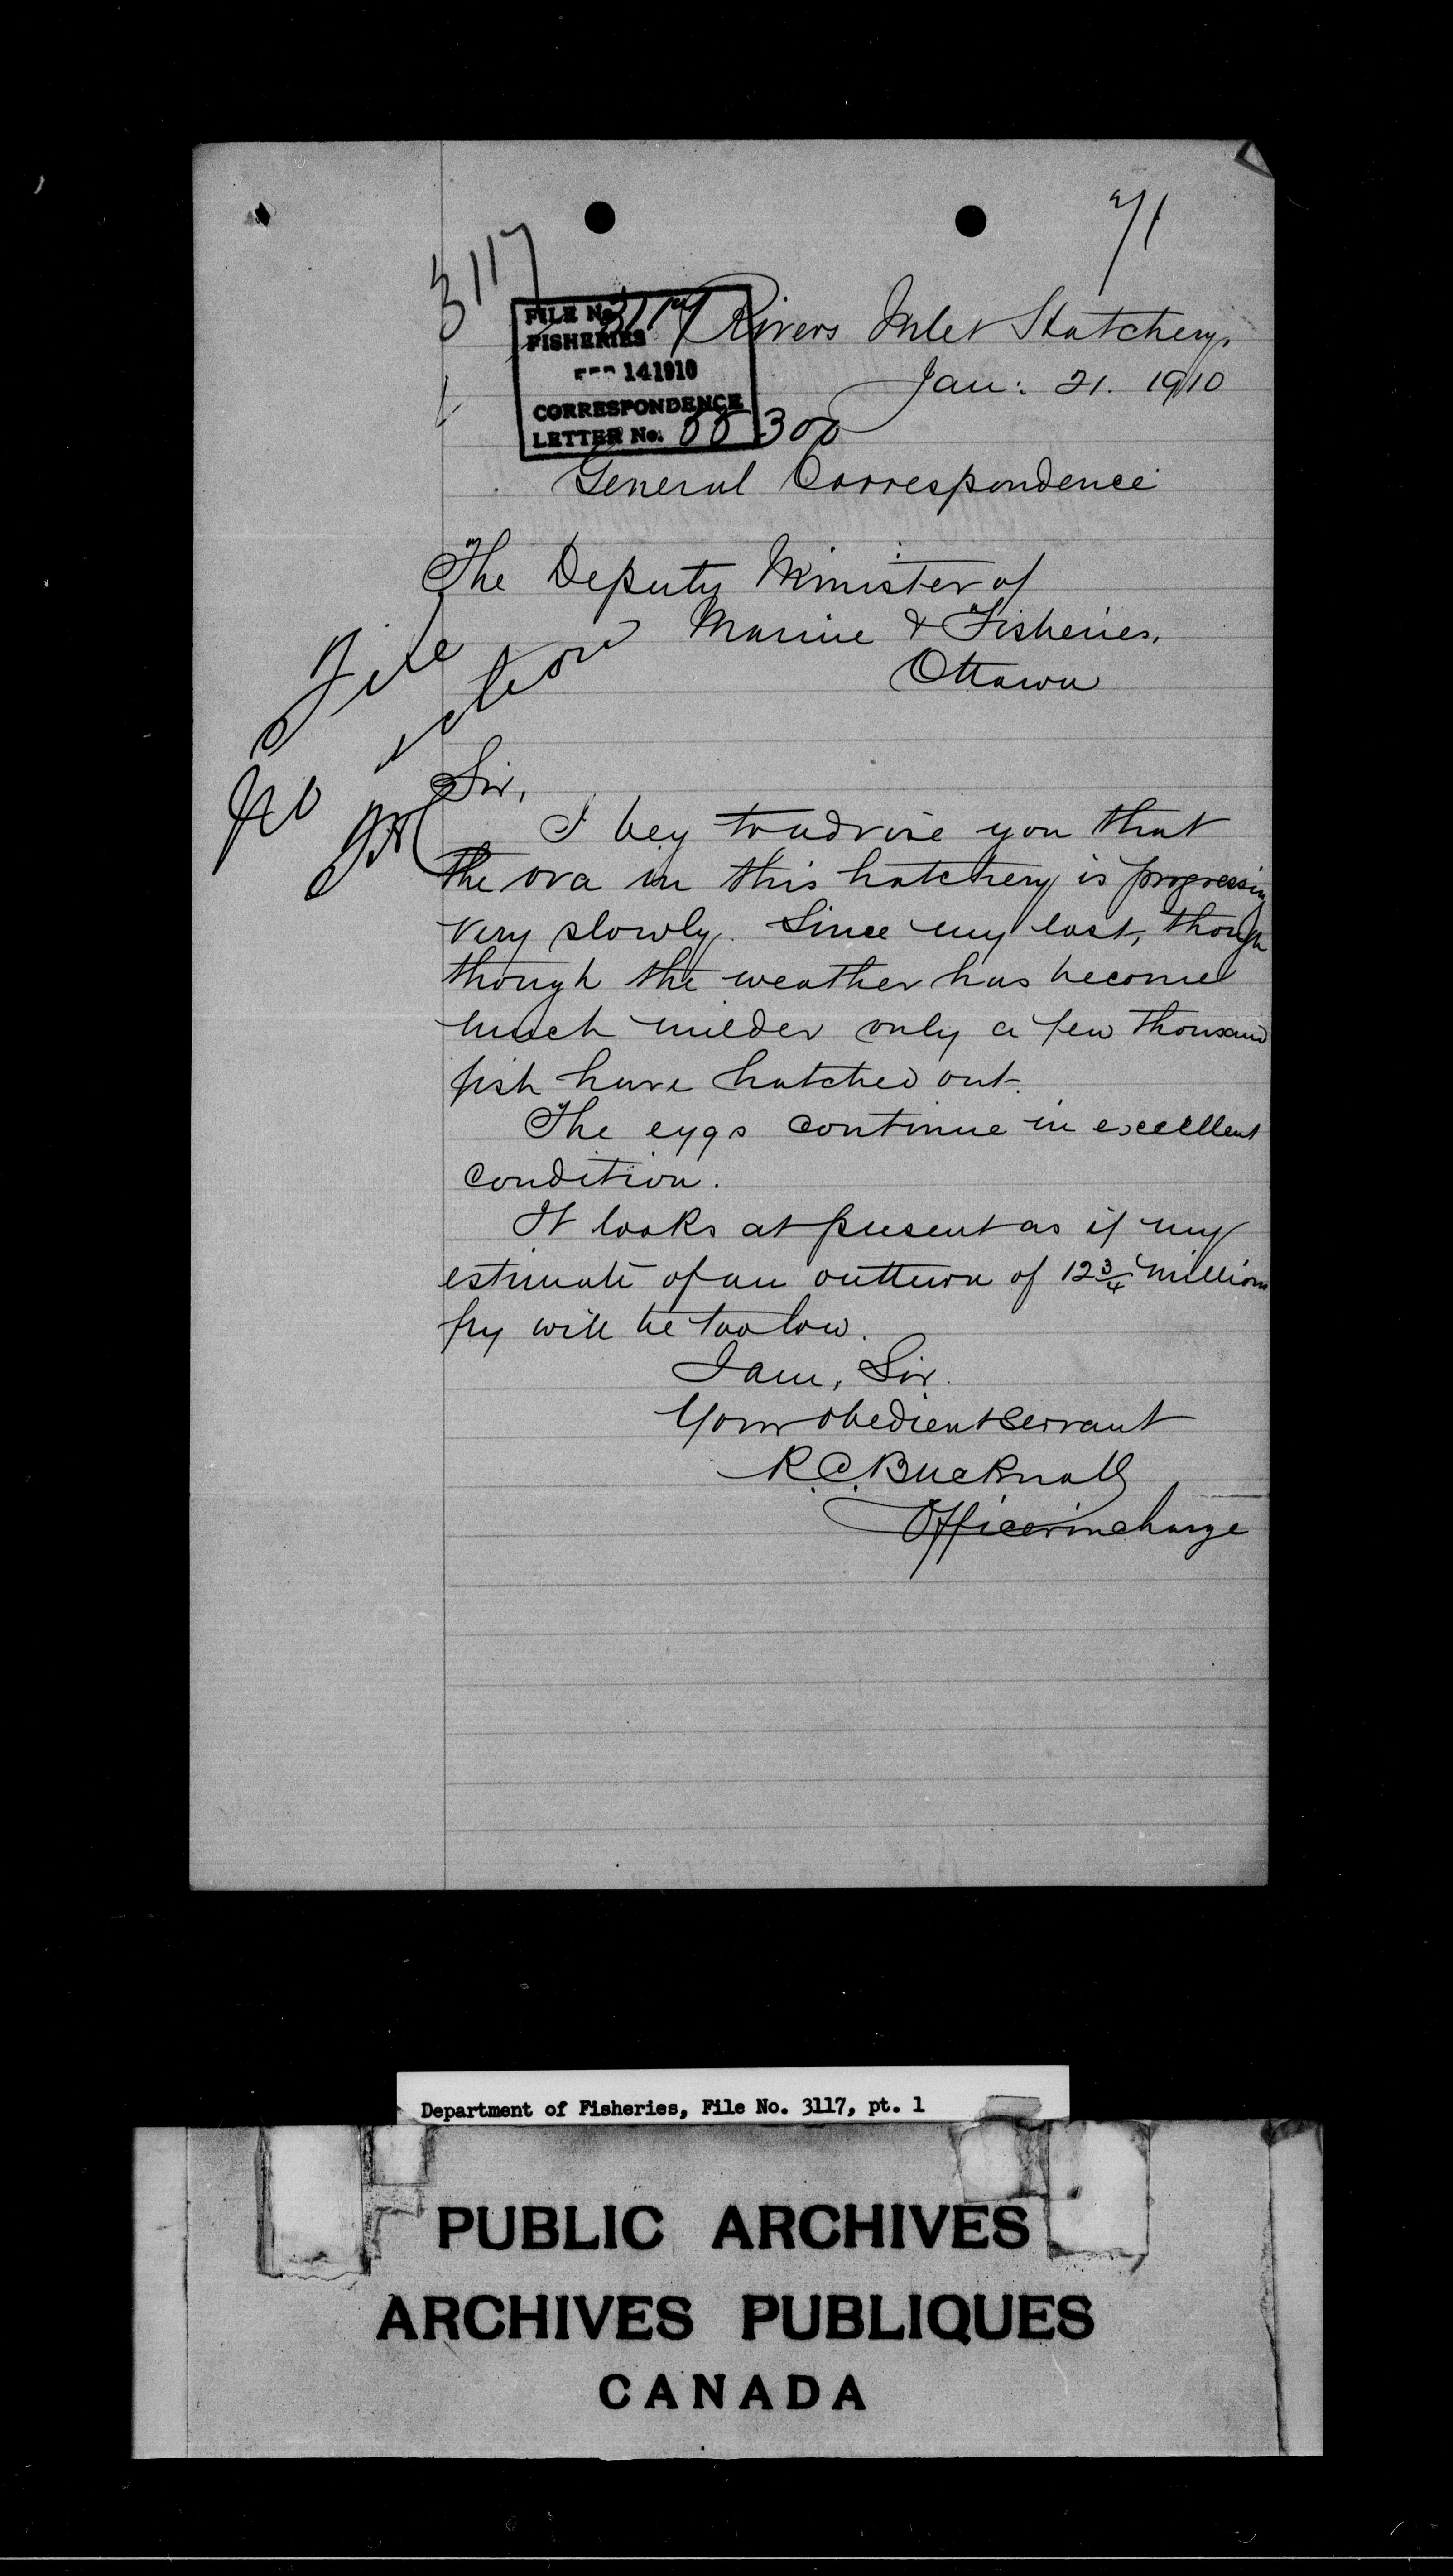 71
3117
FILE No. 3117
FISHERIES
FEB 14 1910
CORRESPONDENCE
LETTER No. 00300
Rivers Inlet Hatchery.
Jan: 21. 1910
General Correspondence
The Deputy Minister of
Marine & Fisheries.
Ottawa
File
No action
Sir,
I beg to advise you that
the ova in this hatchery is progressing
very slowly. Since my last, though
though the weather has become
much milder only a few thousand
fish have hatched out.
The eggs continue in excellent
condition.
It looks at present as if my
estimate of an outturn of 12 3/4 millions
fry will be too low.
I am, Sir.
Your obedient servant
R.C. Bucknall
Officer in charge
Department of Fisheries, File No. 3117, pt. 1
PUBLIC ARCHIVES
ARCHIVES PUBLIQUES
CANADA